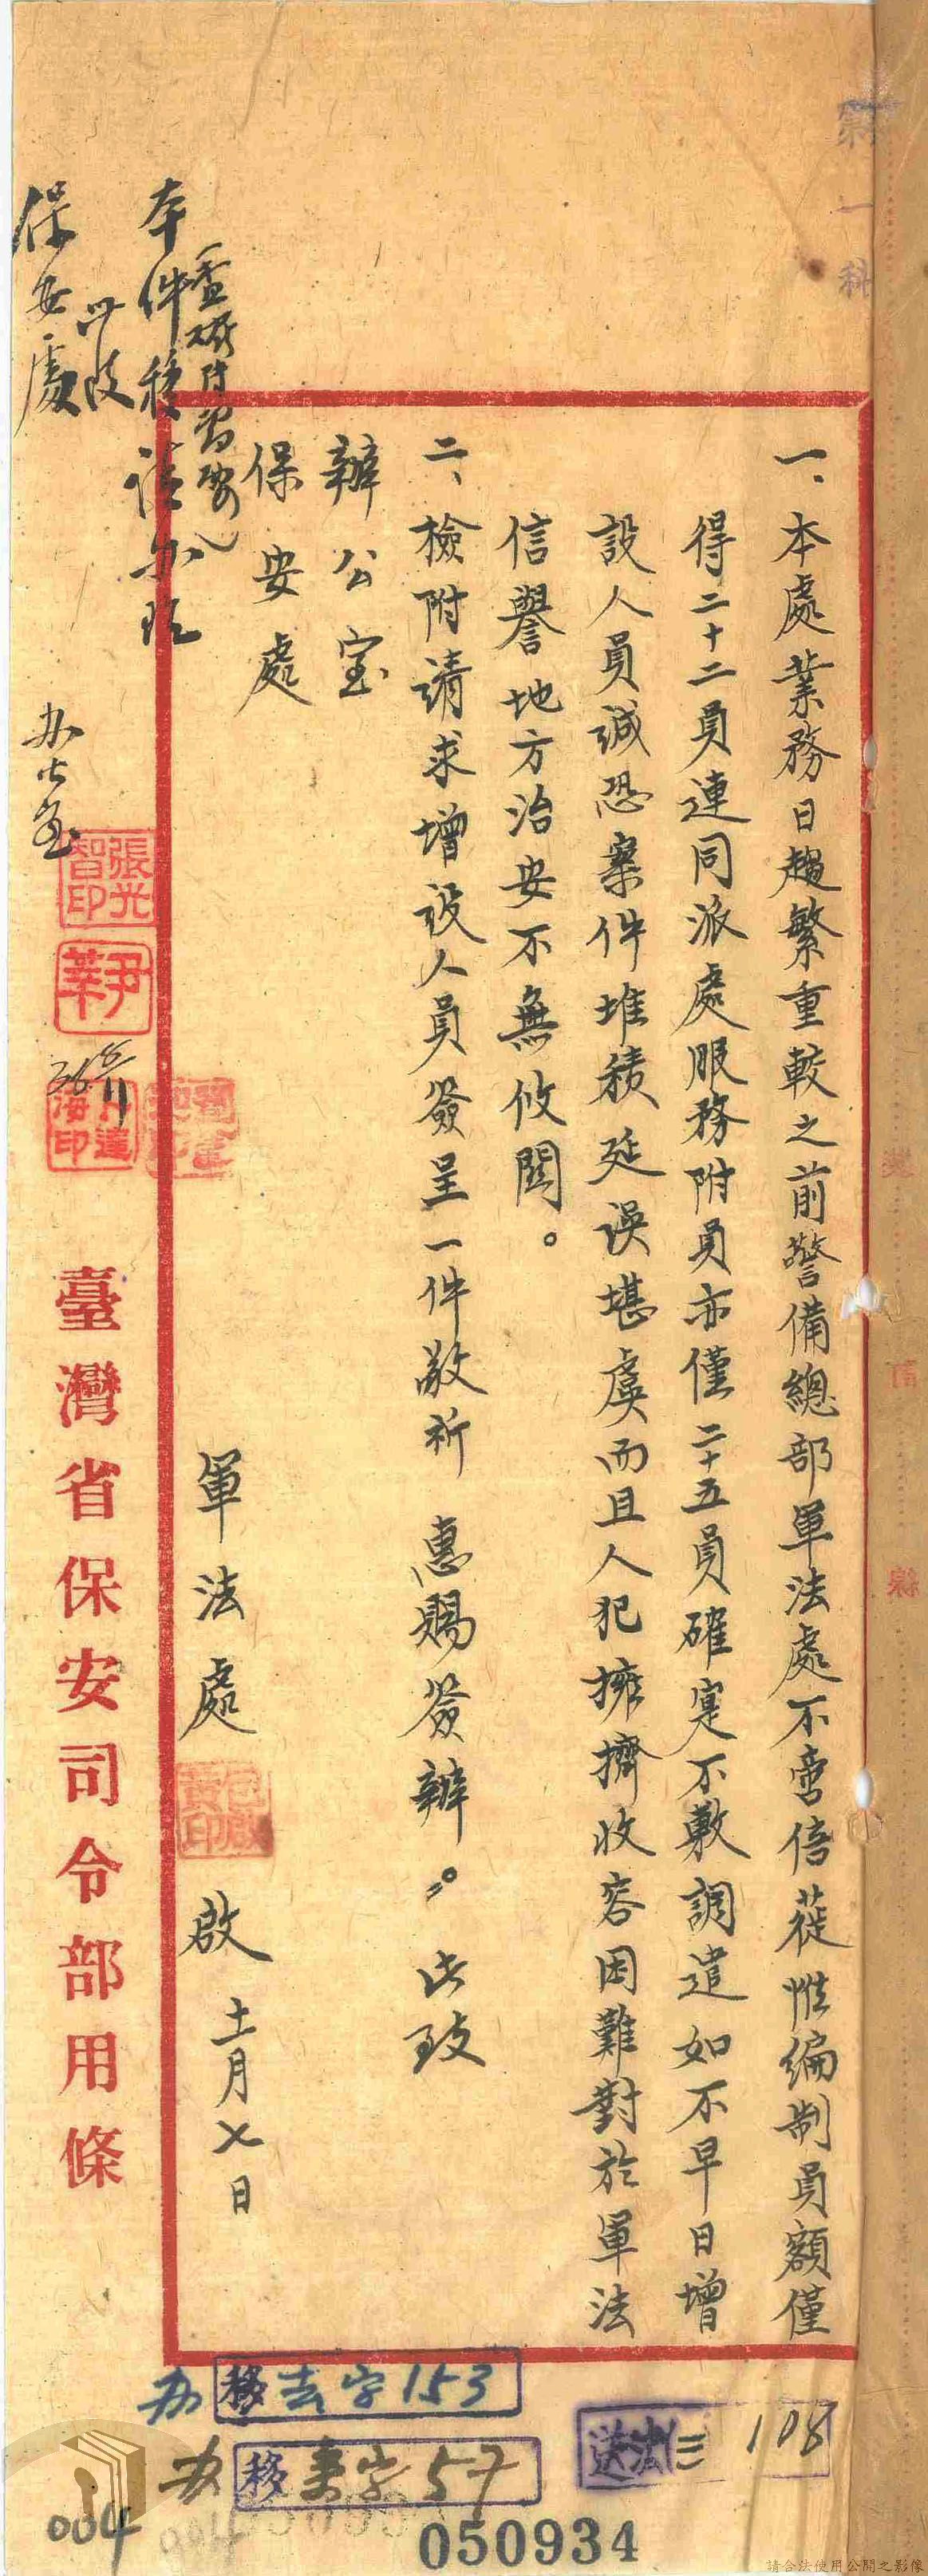 第一科
一、本處業務日趨繁重較之前警備總部軍法處不啻倍蓰惟編制員額僅
得二十二員連同派處服務附員亦僅二十五員確寔不敷調遣如不早日增
設人員誠恐案件堆積延誤堪虞而且人犯擁擠收容困難對於軍法
信譽地方治安不無攸關。
二、檢附請求增設人員簽呈一件敬祈 惠賜簽辦。此致
辦公室
保安處
軍法處 啟 十一月七日
本件移請办理
此致
保安處
办公室
張光智印
尹莘
臺灣省保安司令部用條
办移去字153
办移来字57
送法 三 108
004
050934
請合法使用公開之影像